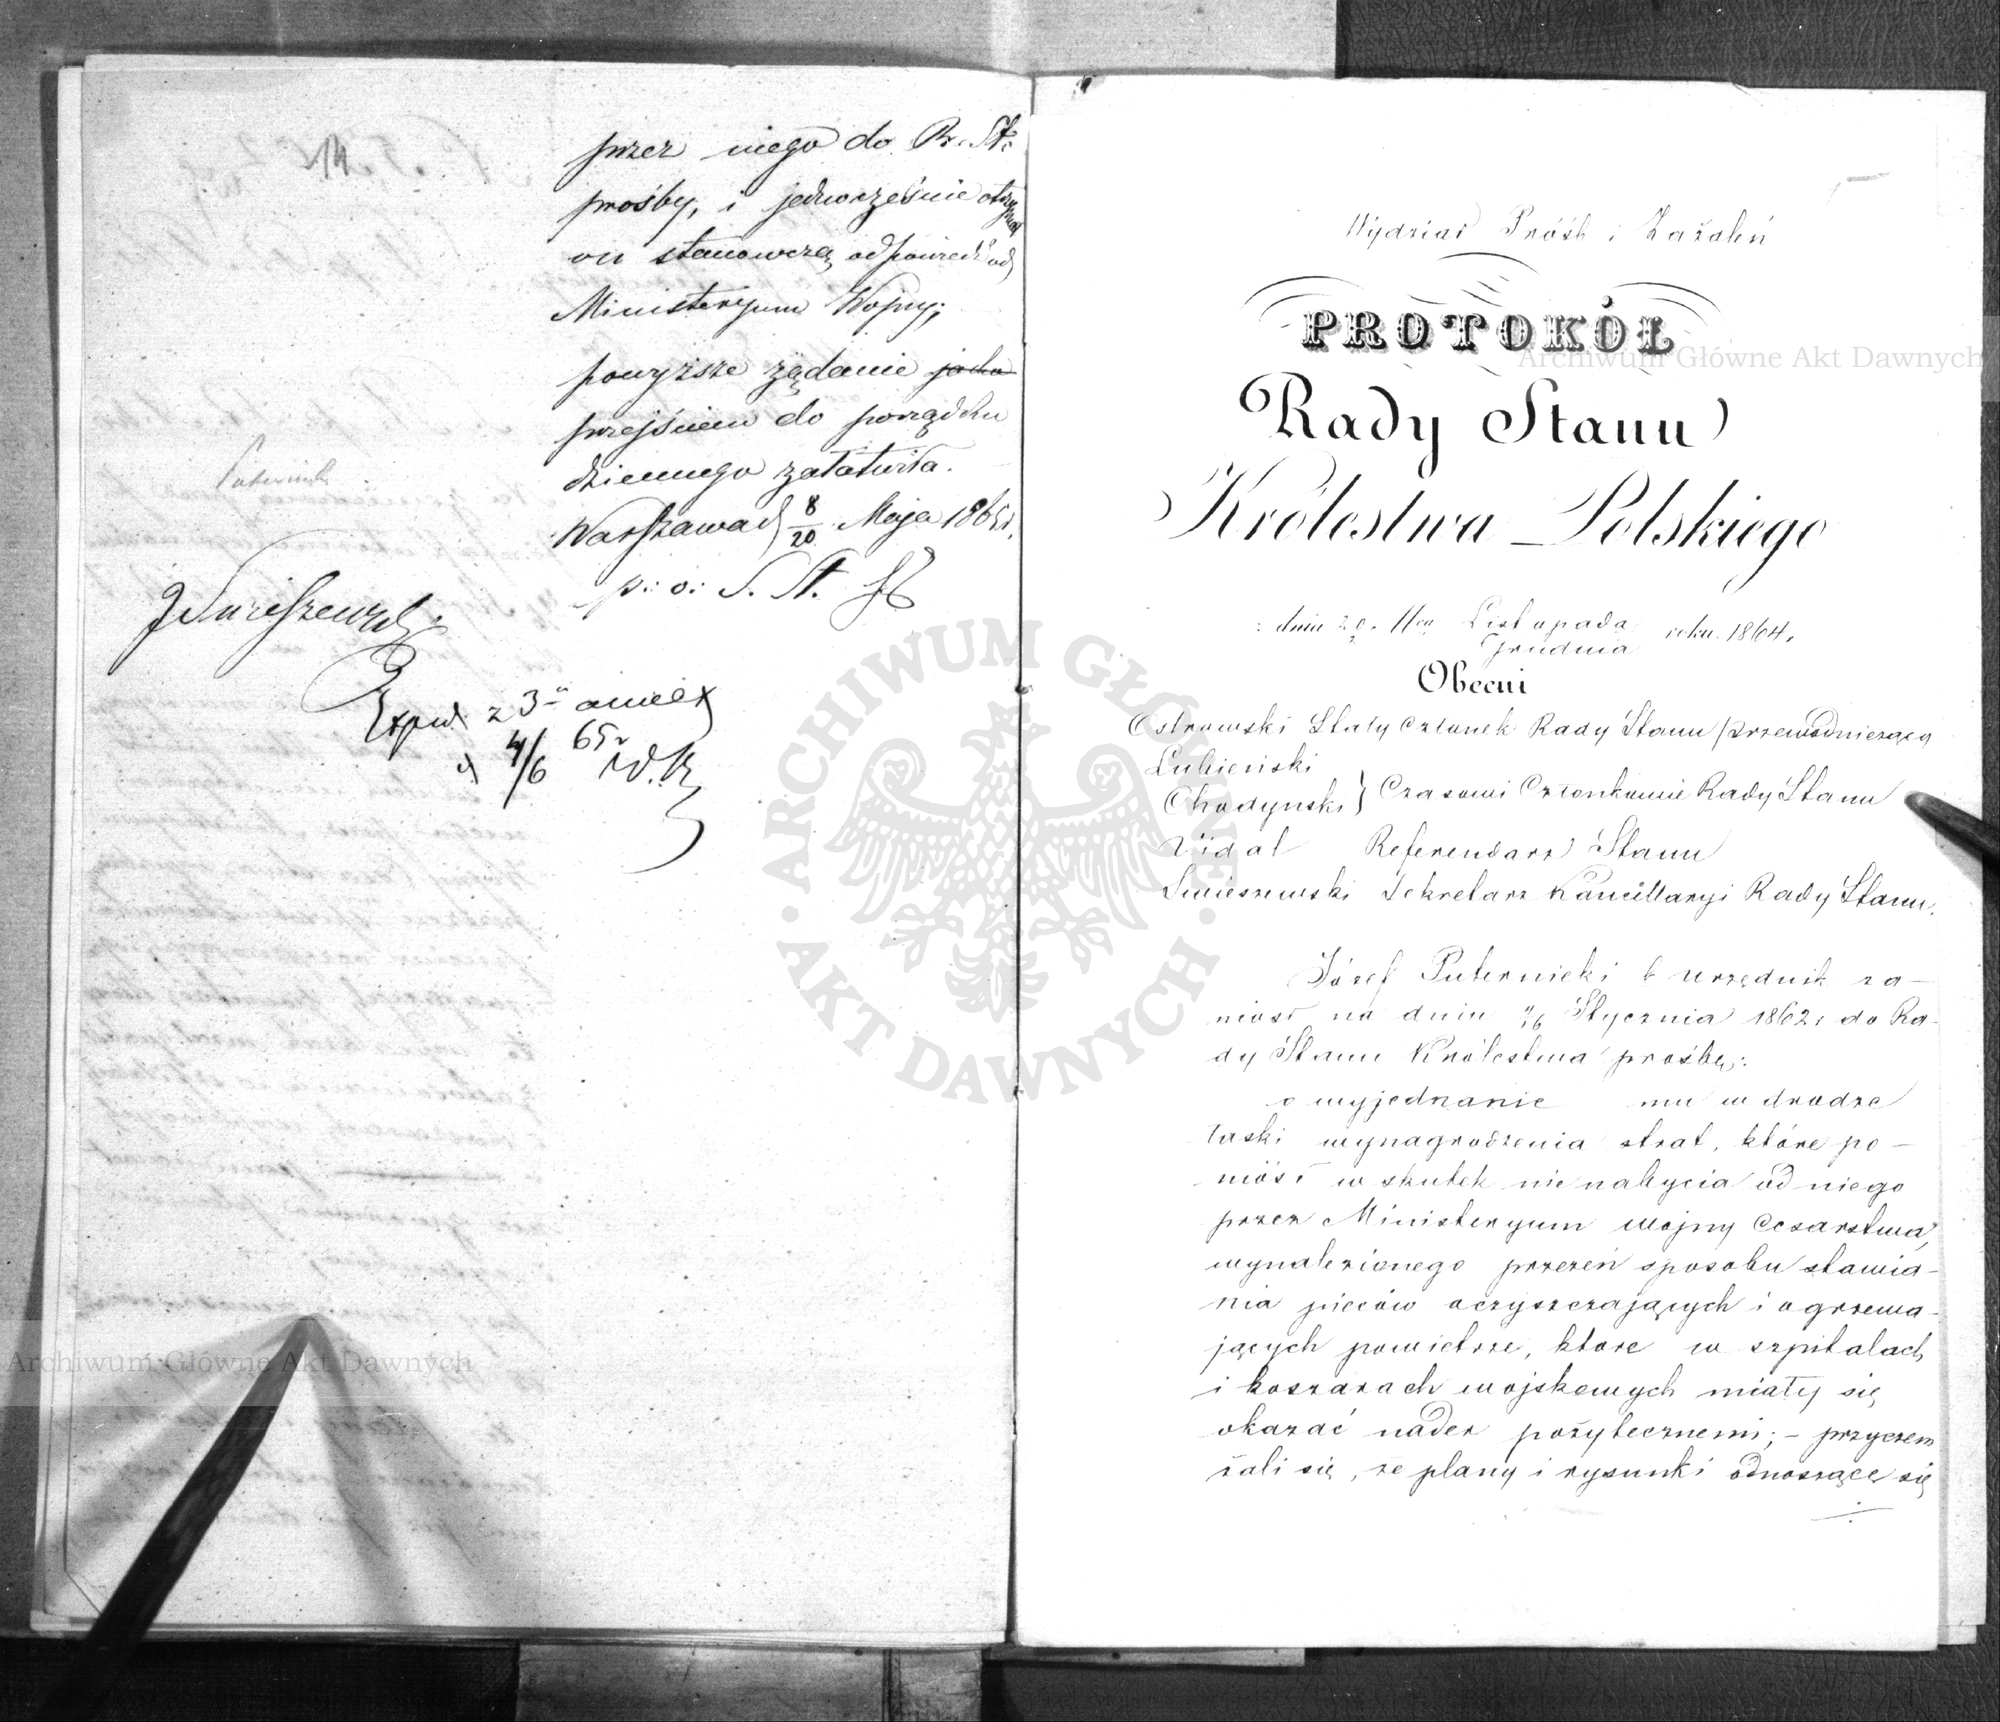 14
przez niego do R. St.
prośby, i jednocześnie otrzymał
on stanowczą odpowiedź od
Ministeryum Wojny;
powyższe żądanie jako
przejściem do porządku
dziennego załatwiła.
Warszawa d 8/20 Maja 1865 r.
p. o. S. St.
Puternicki
Expd. z 3 anex
d 4/6 65 r
Wydział Próśb i Zażaleń
PROTOKÓŁ
Rady Stanu
Królestwa Polskiego
dnia 29. Listopada
11 Grudnia roku 1864.
Obecni
Ostrowski Stały Członek Rady Stanu przewodniczący
Lubieński
Chodyński } Czasowi Członkowie Rady Stanu
Vidal Referendarz Stanu
Smieszewski Sekretarz Kancellaryi Rady Stanu.
Józef Puternicki b urzędnik za-
niosł na dniu 4/16 Stycznia 1862 r do Ra-
dy Stanu Królestwa prośbę:
o wyjednanie mu w drodze
łaski wynagrodzenia strat, które po-
niósł w skutek nie nabycia od niego
przez Ministeryum wojny Cesarstwa,
wynalezionego przezeń sposobu stawia-
nia pieców oczyszczających i ogrzewa-
jących powietrze, które w szpitalach
i koszarach wojskowych miały się
okazać nader pożytecznemi; - przyczem
żali się, że plany i rysunki odnoszące się
ARCHIWUM GŁÓWNE AKT DAWNYCH
Archiwum Główne Akt Dawnych
Archiwum Główne Akt Dawnych